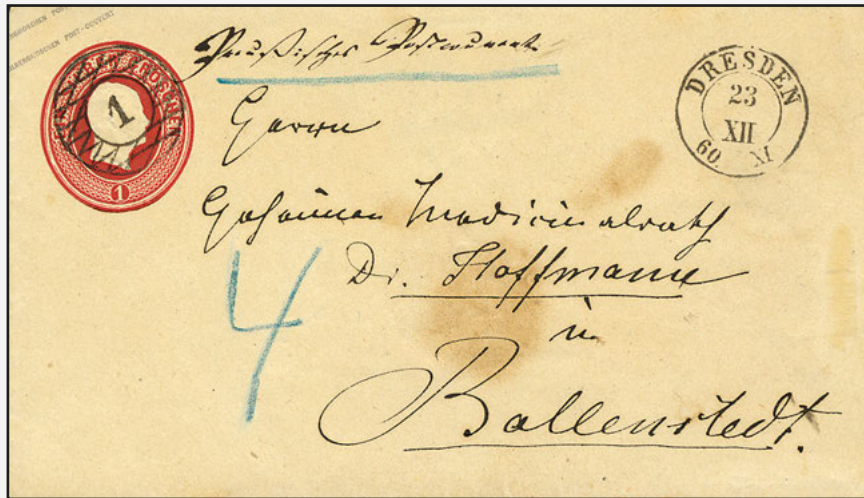 POST-COUVERT
Preußisches Postcouvert
GROSCHEN
1
1
DRESDEN
23
XII
60 XI
Herrn
Geheimen Medicinalrath
Dr. Hoffmann
4
in
Ballenstedt.